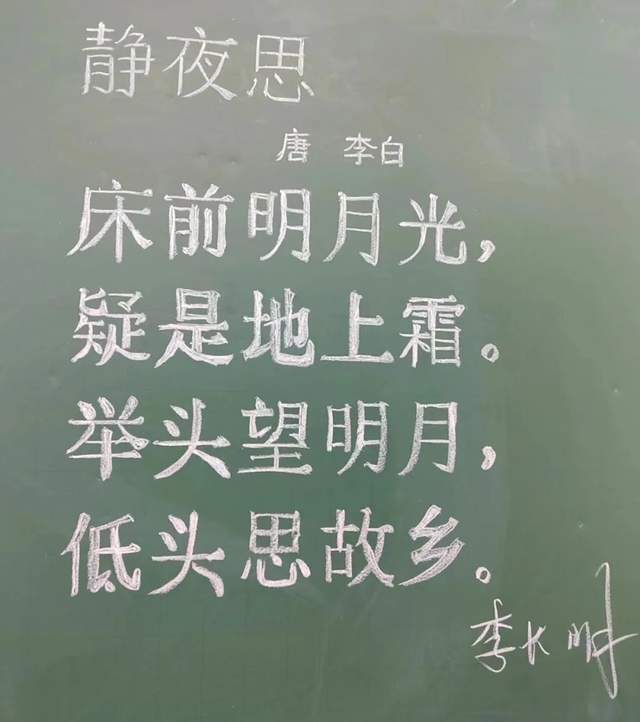 静夜思
唐 李白
床前明月光，
疑是地上霜。
举头望明月，
低头思故乡。
李长时